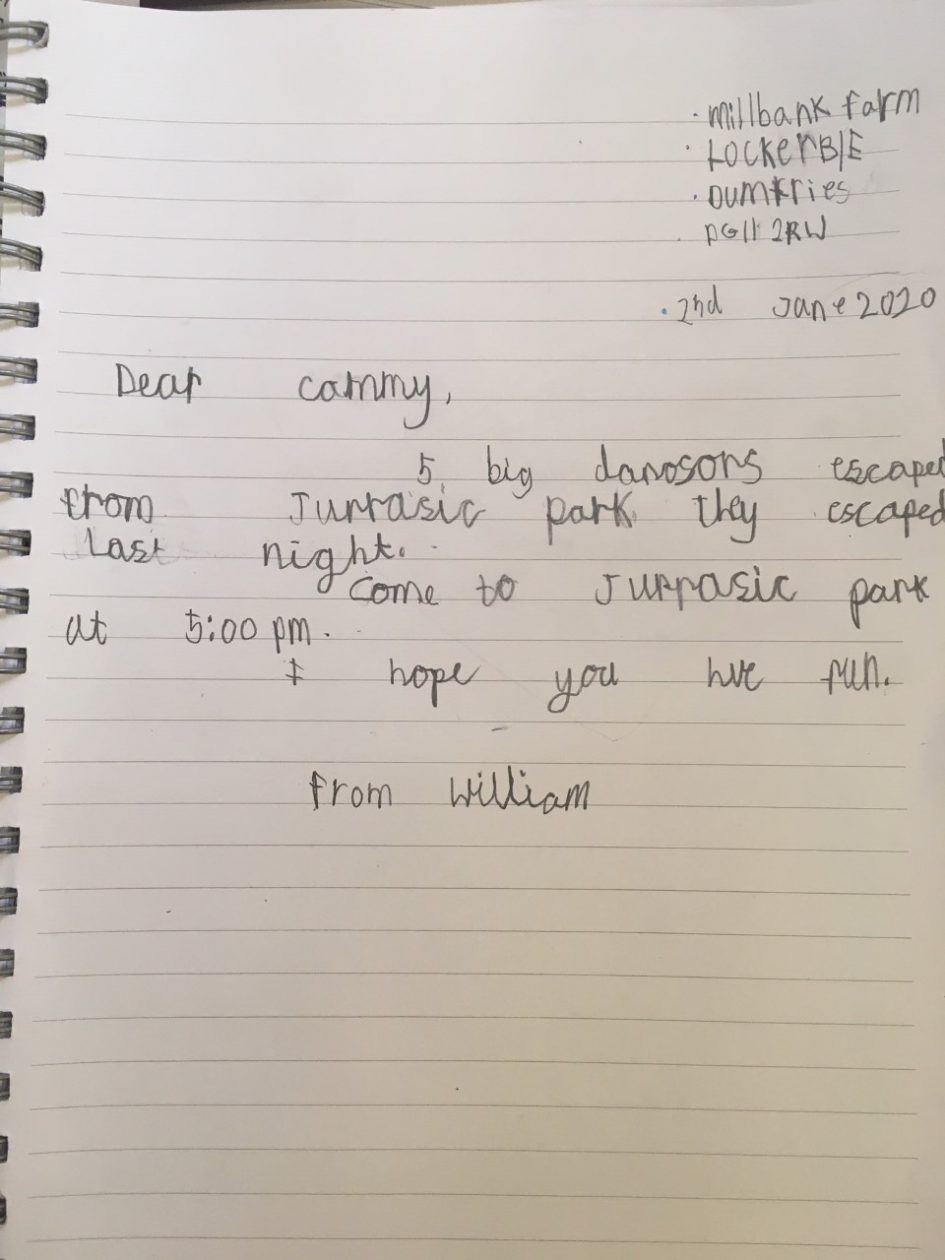 · millbank farm
· LOCKERBIE
· Dumfries
. DG11 2RW
. 2nd June 2020
Dear cammy,
5 big danosors escaped
from Jurrasic park they escaped
Last night.
Come to Jurrasic park
at 5:00 pm.
I hope you hve fun.
from William